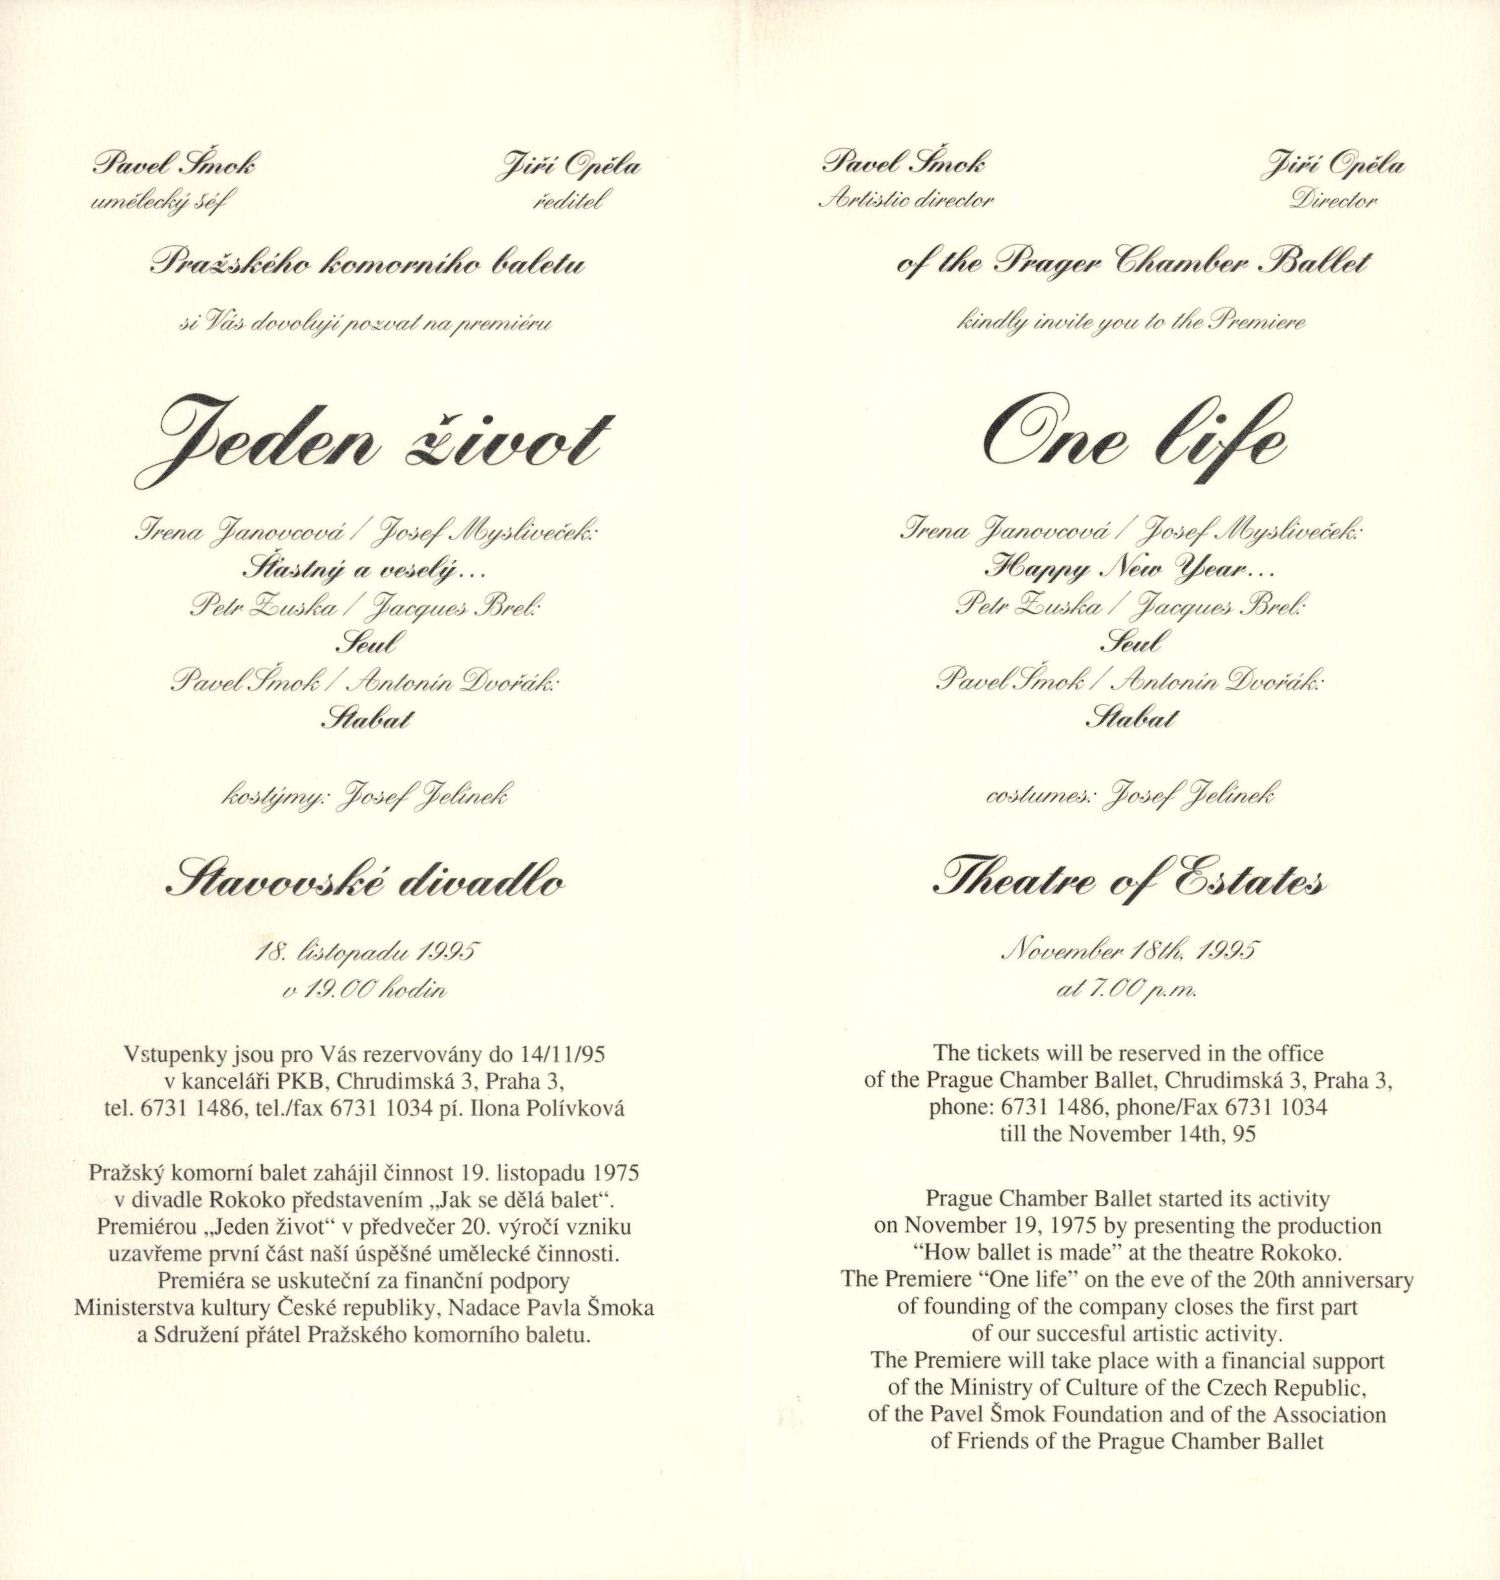 Pavel Šmok
Jiří Opěla
umělecký šéf
ředitel
Pražského komorního baletu
si Vás dovolují pozvat na premiéru
Jeden život
Irena Janovcová / Josef Mysliveček:
Šťastný a veselý...
Petr Zuska / Jacques Brel:
Seul
Pavel Šmok / Antonín Dvořák:
Stabat
kostýmy: Josef Jelínek
Stavovské divadlo
18. listopadu 1995
v 19.00 hodin
Vstupenky jsou pro Vás rezervovány do 14/11/95
v kanceláři PKB, Chrudimská 3, Praha 3,
tel. 6731 1486, tel./fax 6731 1034 pí. Ilona Polívková
Pražský komorní balet zahájil činnost 19. listopadu 1975
v divadle Rokoko představením „Jak se dělá balet“.
Premiérou „Jeden život“ v předvečer 20. výročí vzniku
uzavřeme první část naší úspěšné umělecké činnosti.
Premiéra se uskuteční za finanční podpory
Ministerstva kultury České republiky, Nadace Pavla Šmoka
a Sdružení přátel Pražského komorního baletu.
Pavel Šmok
Jiří Opěla
Artistic director
Director
of the Prager Chamber Ballet
kindly invite you to the Premiere
One life
Irena Janovcová / Josef Mysliveček:
Happy New Year...
Petr Zuska / Jacques Brel:
Seul
Pavel Šmok / Antonín Dvořák:
Stabat
costumes: Josef Jelínek
Theatre of Estates
November 18th, 1995
at 7.00 p.m.
The tickets will be reserved in the office
of the Prague Chamber Ballet, Chrudimská 3, Praha 3,
phone: 6731 1486, phone/Fax 6731 1034
till the November 14th, 95
Prague Chamber Ballet started its activity
on November 19, 1975 by presenting the production
“How ballet is made” at the theatre Rokoko.
The Premiere “One life” on the eve of the 20th anniversary
of founding of the company closes the first part
of our succesful artistic activity.
The Premiere will take place with a financial support
of the Ministry of Culture of the Czech Republic,
of the Pavel Šmok Foundation and of the Association
of Friends of the Prague Chamber Ballet